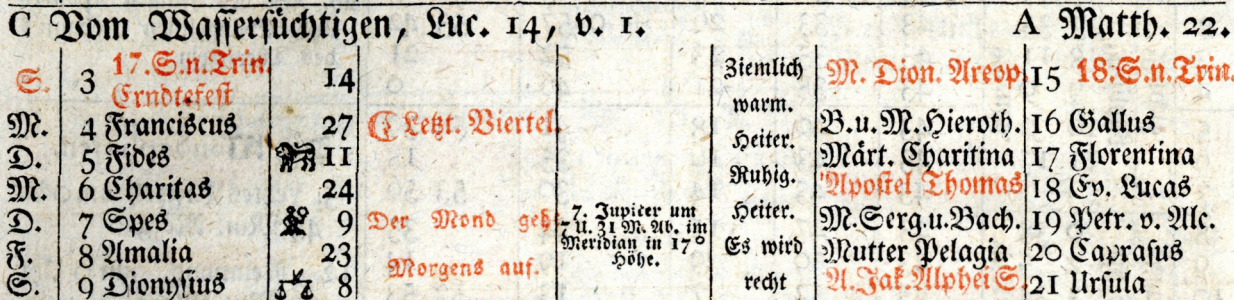 C Vom Wassersüchtigen, Luc. 14, v. 1. A Matth. 22.
S. 3 17. S. n. Trin. Erndtefest 14 Ziemlich M. Dion. Areop. 15 18. S. n. Trin.
warm.
M. 4 Franciscus 27 ☾ Letzt. Viertel. B. u. M. Hieroth. 16 Gallus
Heiter.
D. 5 Fides ♌ 11 Märt. Charitina 17 Florentina
Ruhig.
M. 6 Charitas 24 Apostel Thomas 18 Ev. Lucas
Heiter.
D. 7 Spes ♍ 9 Der Mond geht 7. Jupiter um 7 U. 31 M. Ab. im Meridian in 17° Höhe. M. Serg. u. Bach. 19 Petr. v. Alc.
Es wird
F. 8 Amalia 23 Morgens auf. Mutter Pelagia 20 Caprasus
S. 9 Dionysius ♎ 8 recht A. Jak. Alphei S. 21 Ursula